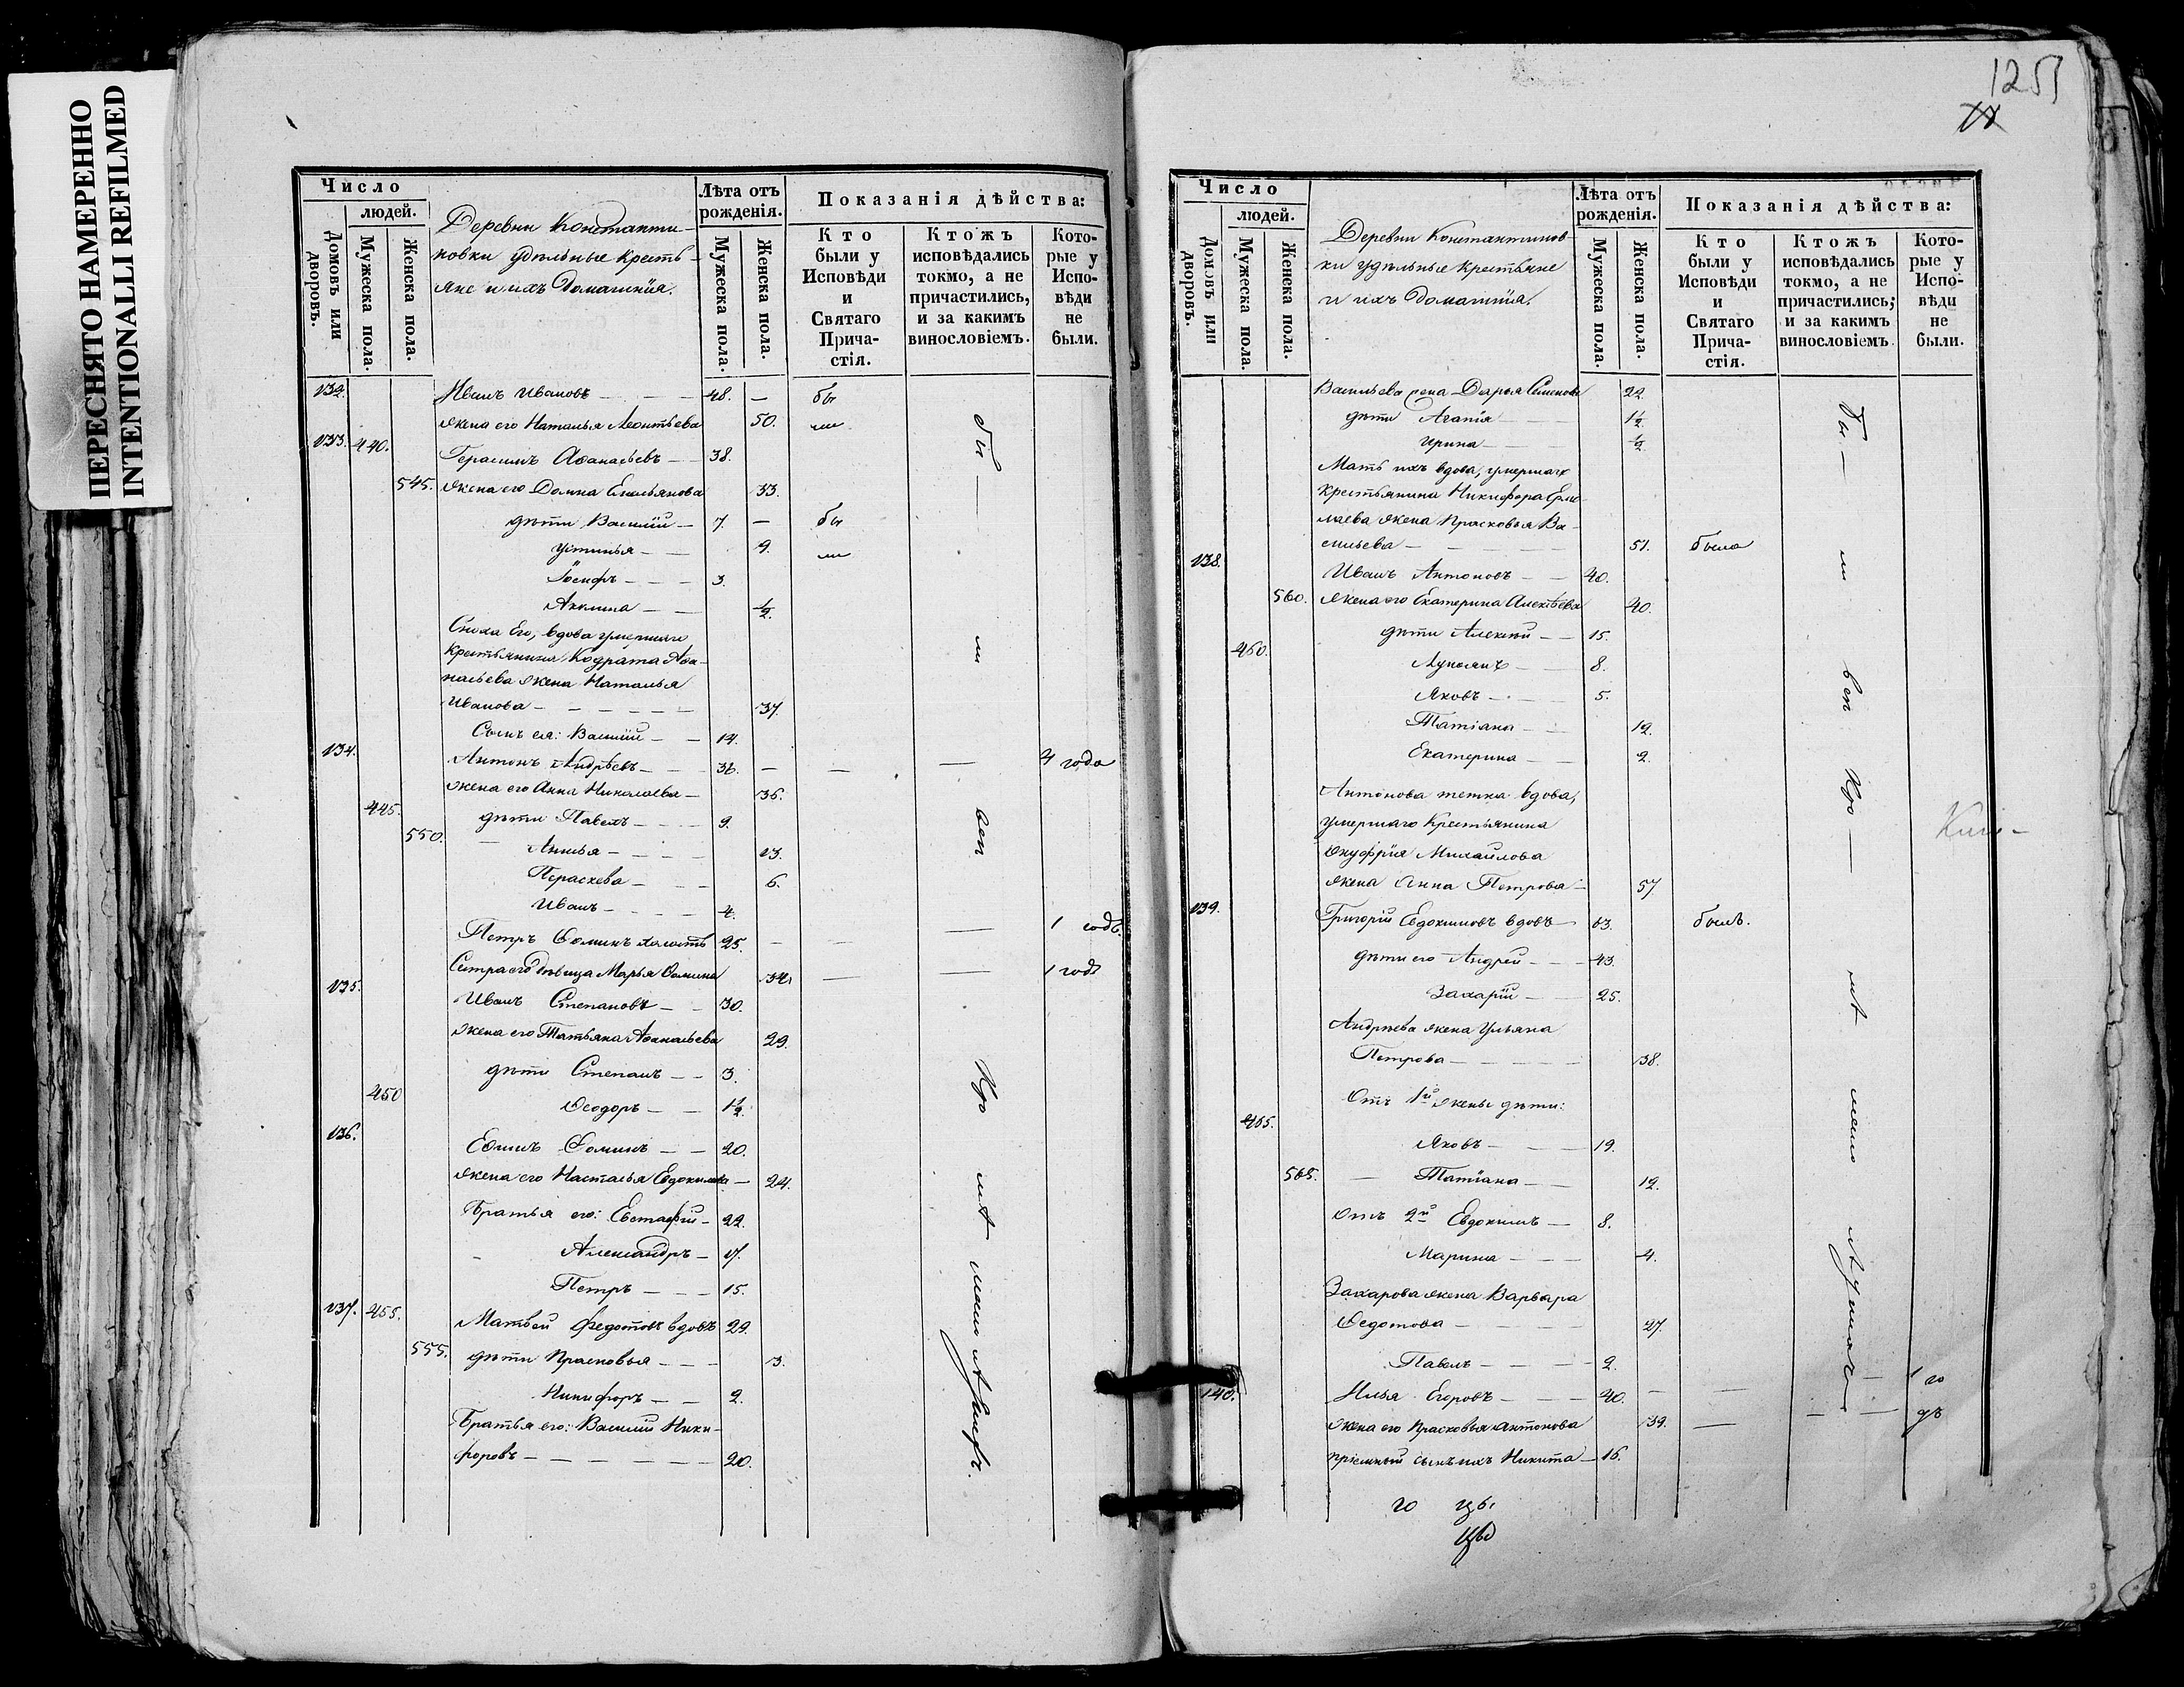 ПЕРЕСНЯТО НАМЕРЕННО
INTENTIONALLI REFILMED
Число
людей.
Домовъ или дворовъ.
Мужеска пола.
Женска пола.
Деревни Константи-
новки удѣльные кресть-
яне и ихъ домашнія.
Лѣта отъ рожденія.
Мужеска пола.
Женска пола.
Показанія дѣйства:
Кто были у Исповѣди и Святаго Прича-стія.
Ктожъ исповѣдались токмо, а не причастились, и за какимъ винословіемъ.
Кото-рые у Испо-вѣди не были.
132. Иванъ Ивановъ — 48. — бы
жена его Наталья Леонтьева 50. ли
133. 440. Герасимъ Аѳанасьевъ — 38.
545. жена его Домна Емельянова 33.
дѣти Василій — 7. — бы
Устинья — 9. ли
Іосифъ — 3.
Акилина — ½.
Сноха Его, вдова умершаго
крестьянина Кодрата Аѳа-
насьева жена Наталья
Иванова — 37.
Сынъ ея: Василій — 14.
134. Антонъ Андрѣевъ — 36. — — — 4 года
жена его Анна Николаева — 36.
445. дѣти Павелъ — 9.
550. Анисья — 13.
Параскева — 6.
Иванъ — 4.
Петръ Ѳоминъ холостъ 25. — — — 1 годъ.
Сестра его дѣвица Марья Ѳомина 34. — — 1 годъ
135. Иванъ Степановъ — 30.
жена его Татьяна Аѳанасьева 29.
дѣти Степанъ — 3.
450 Ѳеодоръ — 1½.
136. Ефимъ Ѳоминъ — 20.
жена его Настасья Евдокимова — 24.
Братья его: Евстафій — 22.
Александръ — 17.
Петръ — 15.
137. 455. Матвѣй Федотовъ вдовъ 29.
555. дѣти Прасковья — 3.
Никифоръ — 2.
Братья его: Василій Ники-
форовъ — 20.
1251
Число
людей.
Домовъ или дворовъ.
Мужеска пола.
Женска пола.
Деревни Константинов-
ки удѣльные крестьяне
и ихъ домашнія.
Лѣта отъ рожденія.
Мужеска пола.
Женска пола.
Показанія дѣйства:
Кто были у Исповѣди и Святаго Прича-стія.
Ктожъ исповѣдались токмо, а не причастились; и за какимъ винословіемъ.
Кото-рые у Испо-вѣди не были.
Васильева жена Дарья Семенова 22
дѣти Агапія — 1½
Ирина — ½
Мать ихъ вдова, умершаго
крестьянина Никифора Ермо-
лаева жена Прасковья Ва-
сильева — 51. была
138. Иванъ Антоновъ — 40.
560. жена его Екатерина Алексѣева 40.
дѣти Алексѣй — 15.
460. Лукіянъ — 8.
Яковъ — 5.
Татіана — 12.
Екатерина — 2.
Антонова тетка вдова,
умершаго крестьянина
Онуфрія Михайлова
жена Анна Петрова — 57
139. Григорій Евдокимовъ вдовъ — 63. былъ.
дѣти его Андрей — 43.
Захарій — 25.
Андрѣева жена Ульяна
Петрова — 38.
Отъ 1й жены дѣти:
465. Яковъ — 19.
565. Татіана — 12.
отъ 2й Евдокимъ — 8.
Марина — 4.
Захарова жена Варвара
Ѳедотова — 27.
Павелъ — 2.
140. Илья Егоровъ — 40. — — — 1 го
жена его Прасковья Антонова 39. — — — дъ
пріемный сынъ ихъ Никита — 16.